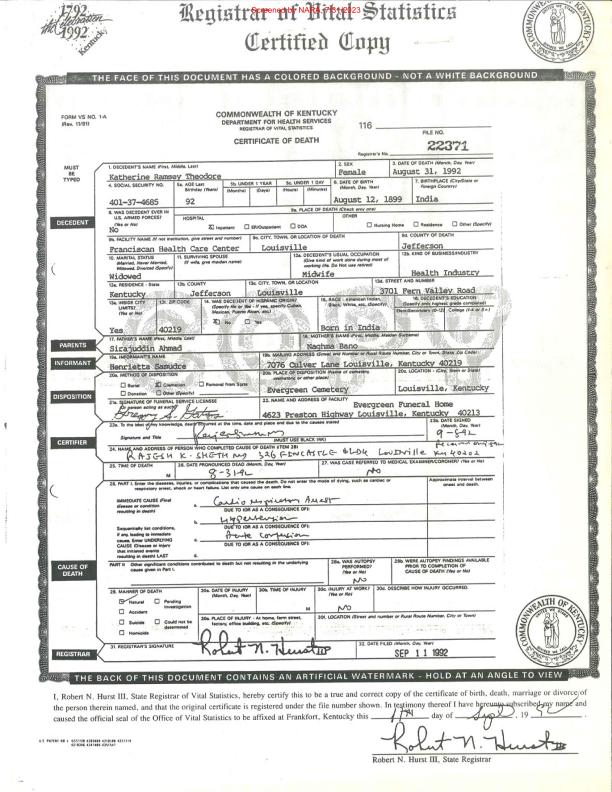 1792
1992
Kentucky
Registrar of Vital Statistics
Screened by NARA, 7/31/2023
Certified Copy
COMMONWEALTH OF KENTUCKY
THE FACE OF THIS DOCUMENT HAS A COLORED BACKGROUND - NOT A WHITE BACKGROUND
FORM VS NO. 1-A
(Rev. 11/91)
COMMONWEALTH OF KENTUCKY
DEPARTMENT FOR HEALTH SERVICES
REGISTRAR OF VITAL STATISTICS
CERTIFICATE OF DEATH
116
FILE NO.
Registrar's No. 22371
MUST BE TYPED
1. DECEDENT'S NAME (First, Middle, Last)
Katherine Ramsey Theodore
2. SEX
Female
3. DATE OF DEATH (Month, Day, Year)
August 31, 1992
4. SOCIAL SECURITY NO.
401-37-4685
5a. AGE Last Birthday (Years)
92
5b. UNDER 1 YEAR
(Months) (Days)
5c. UNDER 1 DAY
(Hours) (Minutes)
6. DATE OF BIRTH (Month, Day, Year)
August 12, 1899
7. BIRTHPLACE (City/State or Foreign Country)
India
DECEDENT
8. WAS DECEDENT EVER IN U.S. ARMED FORCES? (Yes or No)
No
9a. PLACE OF DEATH (Check only one)
HOSPITAL
Inpatient ER/Outpatient DOA
OTHER
Nursing Home Residence Other (Specify)
9b. FACILITY NAME (If not institution, give street and number)
Franciscan Health Care Center
9c. CITY, TOWN, OR LOCATION OF DEATH
Louisville
9d. COUNTY OF DEATH
Jefferson
10. MARITAL STATUS (Married, Never Married, Widowed, Divorced (Specify)
Widowed
11. SURVIVING SPOUSE (If wife, give maiden name)
12a. DECEDENT'S USUAL OCCUPATION (Give kind of work done during most of working life. Do Not use retired)
Midwife
12b. KIND OF BUSINESS/INDUSTRY
Health Industry
13a. RESIDENCE - State
Kentucky
13b. COUNTY
Jefferson
13c. CITY, TOWN, OR LOCATION
Louisville
13d. STREET AND NUMBER
3701 Fern Valley Road
13e. INSIDE CITY LIMITS? (Yes or No)
Yes
13f. ZIP CODE
40219
14. WAS DECEDENT OF HISPANIC ORIGIN?
(Specify No or Yes - If yes, specify Cuban, Mexican, Puerto Rican, etc.)
No Yes
15. RACE - American Indian, Black, White, etc. (Specify)
Born in India
16. DECEDENT'S EDUCATION
(Specify only highest grade completed)
Elem/Secondary (0-12) College (1-4 or 5+)
PARENTS
17. FATHER'S NAME (First, Middle, Last)
Sirajuddin Ahmad
18. MOTHER'S NAME (First, Middle, Maiden Surname)
Naghma Bano
INFORMANT
19a. INFORMANT'S NAME
Henrietta Samudre
19b. MAILING ADDRESS (Street and Number or Rural Route Number, City or Town, State, Zip Code)
7076 Culver Lane Louisville, Kentucky 40219
DISPOSITION
20a. METHOD OF DISPOSITION
Burial Cremation Removal from State
Donation Other (Specify)
20b. PLACE OF DISPOSITION (Name of cemetery, crematory or other place)
Evergreen Cemetery
20c. LOCATION - (City, Town or State)
Louisville, Kentucky
21a. SIGNATURE OF FUNERAL SERVICE LICENSEE
22. NAME AND ADDRESS OF FACILITY
Evergreen Funeral Home
4623 Preston Highway Louisville, Kentucky 40213
CERTIFIER
23a. To the best of my knowledge, death occurred at the time, date and place and due to the causes stated
Signature and Title
(MUST USE BLACK INK)
23b. DATE SIGNED (Month, Day, Year)
24. NAME AND ADDRESS OF PERSON WHO COMPLETED CAUSE OF DEATH (ITEM 28)
RAJESH K. SHETH MD 326 FINCASTLE BLDG Louisville KY 40202
25. TIME OF DEATH
M
26. DATE PRONOUNCED DEAD (Month, Day, Year)
8-31-92
27. WAS CASE REFERRED TO MEDICAL EXAMINER/CORONER? (Yes or No)
NO
28. PART I. Enter the diseases, injuries, or complications that caused the death. Do not enter the mode of dying, such as cardiac or respiratory arrest, shock or heart failure. List only one cause on each line.
Approximate interval between onset and death.
IMMEDIATE CAUSE (Final disease or condition resulting in death)
a. Cardio respiratory Arrest
DUE TO (OR AS A CONSEQUENCE OF):
b. Hypertension
DUE TO (OR AS A CONSEQUENCE OF):
Sequentially list conditions, if any, leading to immediate cause. Enter UNDERLYING CAUSE (Disease or injury that initiated events resulting in death) LAST
c. Acute confusion
DUE TO (OR AS A CONSEQUENCE OF):
d.
CAUSE OF DEATH
PART II Other significant conditions contributed to death but not resulting in the underlying cause given in Part I.
28a. WAS AUTOPSY PERFORMED? (Yes or No)
NO
28b. WERE AUTOPSY FINDINGS AVAILABLE PRIOR TO COMPLETION OF CAUSE OF DEATH (Yes or No)
29. MANNER OF DEATH
Natural Pending Investigation
Accident
Suicide Could not be determined
Homicide
30a. DATE OF INJURY (Month, Day, Year)
30b. TIME OF INJURY
M
30c. INJURY AT WORK? (Yes or No)
NO
30d. DESCRIBE HOW INJURY OCCURRED.
30e. PLACE OF INJURY - At home, farm street, factory, office building, etc. (Specify)
30f. LOCATION (Street and number or Rural Route Number, City or Town)
REGISTRAR
31. REGISTRAR'S SIGNATURE
Robert N. Hurst III
32. DATE FILED (Month, Day, Year)
SEP 11 1992
COMMONWEALTH OF KENTUCKY
THE BACK OF THIS DOCUMENT CONTAINS AN ARTIFICIAL WATERMARK - HOLD AT AN ANGLE TO VIEW
I, Robert N. Hurst III, State Registrar of Vital Statistics, hereby certify this to be a true and correct copy of the certificate of birth, death, marriage or divorce of
the person therein named, and that the original certificate is registered under the file number shown. In testimony thereof I have hereunto subscribed my name and
caused the official seal of the Office of Vital Statistics to be affixed at Frankfort, Kentucky this 11th day of Sept, 1992.
Robert N. Hurst III
Robert N. Hurst III, State Registrar